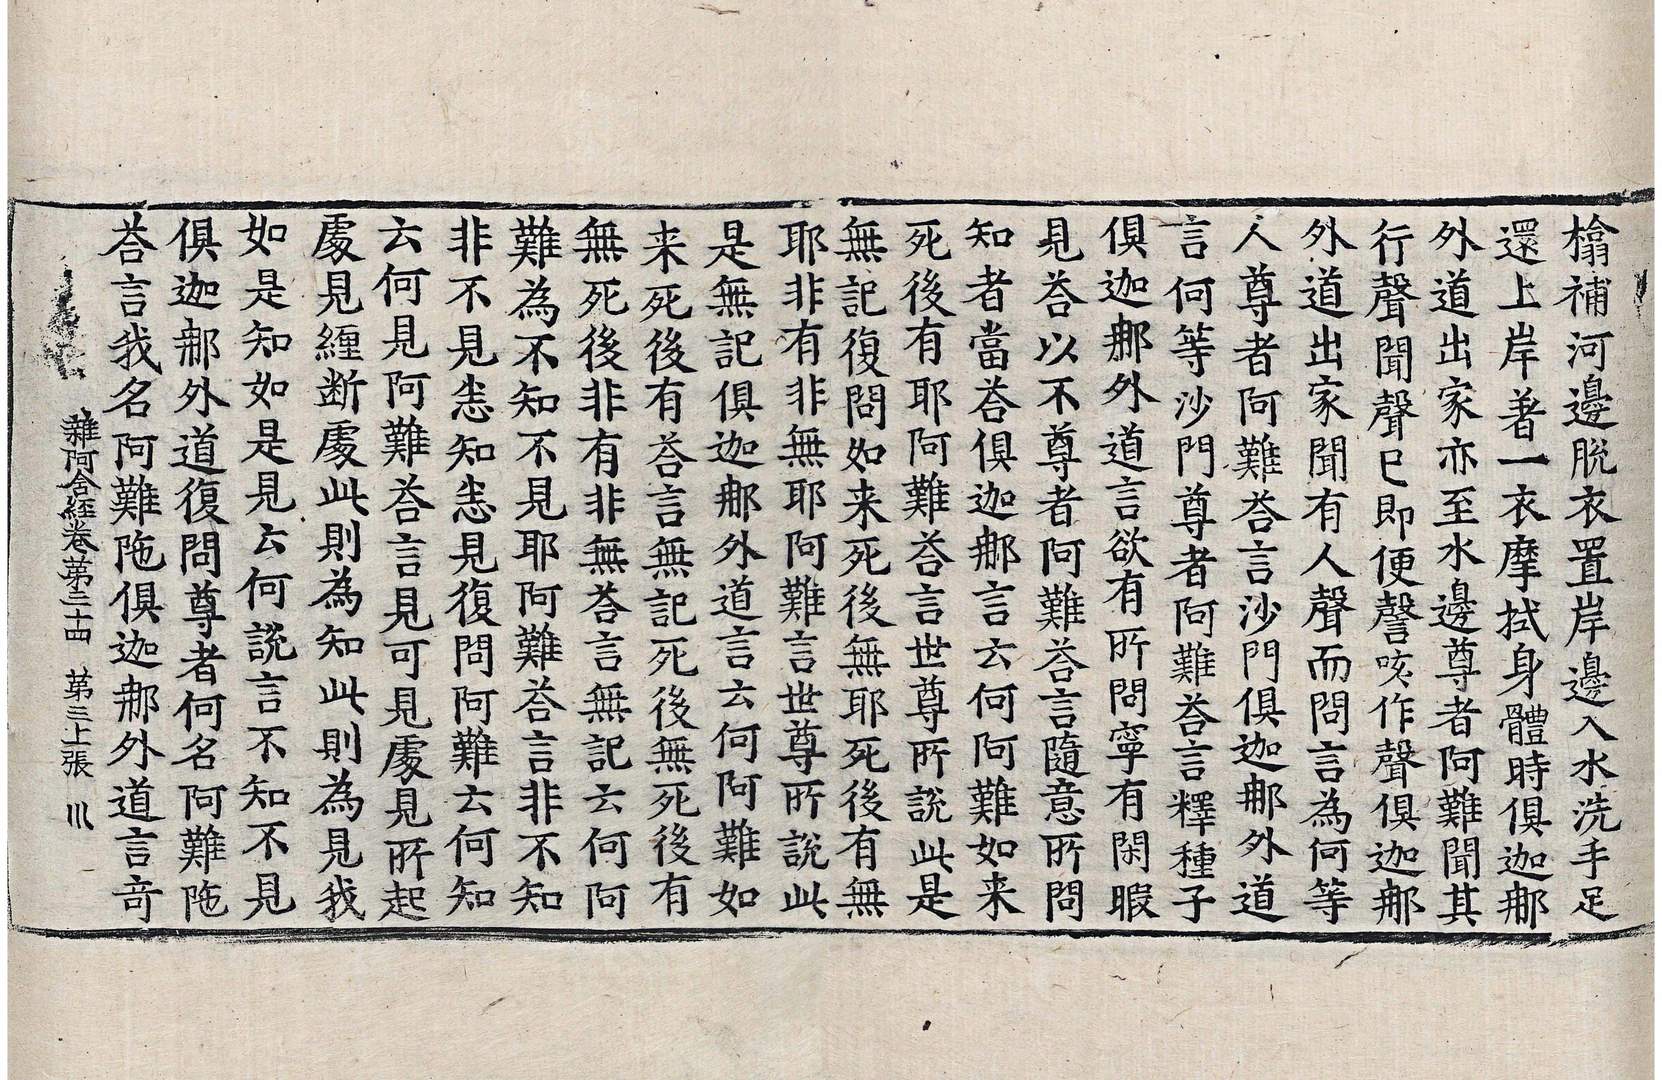 搨補河邊脱衣置岸邊入水洗手足
還上岸著一衣摩拭身體時俱迦那
外道出家亦至水邊尊者阿難聞其
行聲聞聲已即便謦咳作聲俱迦那
外道出家聞有人聲而問言為何等
人尊者阿難荅言沙門俱迦那外道
言何等沙門尊者阿難荅言釋種子
俱迦那外道言欲有所問寧有閑暇
見荅以不尊者阿難荅言隨意所問
知者當荅俱迦那言云何阿難如来
死後有耶阿難荅言世尊所說此是
無記復問如来死後無耶死後有無
耶非有非無耶阿難言世尊所說此
是無記俱迦那外道言云何阿難如
来死後有荅言無記死後無死後有
無死後非有非無荅言無記云何阿
難為不知不見耶阿難荅言非不知
非不見悉知悉見復問阿難云何知
云何見阿難荅言見可見處見所起
處見纏断處此則為知此則為見我
如是知如是見云何說言不知不見
俱迦那外道復問尊者何名阿難陁
荅言我名阿難陁俱迦那外道言奇
雜阿含經卷第三十四 第三上張 川